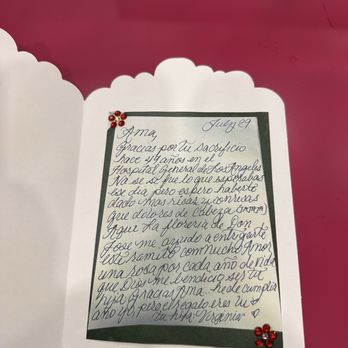 July 29
Ama,
Gracias por tu sacrificio
hace 49 años en el
Hospital General de Los Angeles
No se si fue lo que esperabas
ese dia pero espero haberte
dado mas risas y sonrisas
que dolores de cabeza
Aqui La floreria de Don
Jose me ayudo a entregarte
este ramito con mucho Amor
una rosa por cada año de vida
que Dios me bendicio ser tu
hija Gracias Ama hoy de cumplir
año yo pero el regalo eres tu ♡
tu hija Virginia